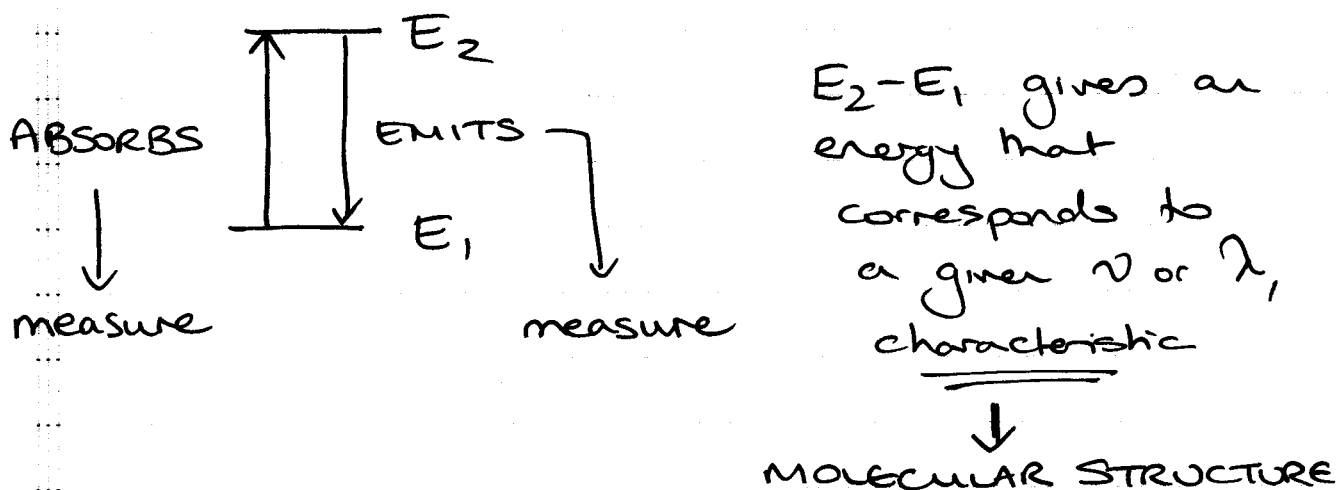 E₂
ABSORBS
EMITS
E₁
measure
measure
E₂-E₁ gives an
energy that
corresponds to
a given ν or λ,
characteristic
MOLECULAR STRUCTURE